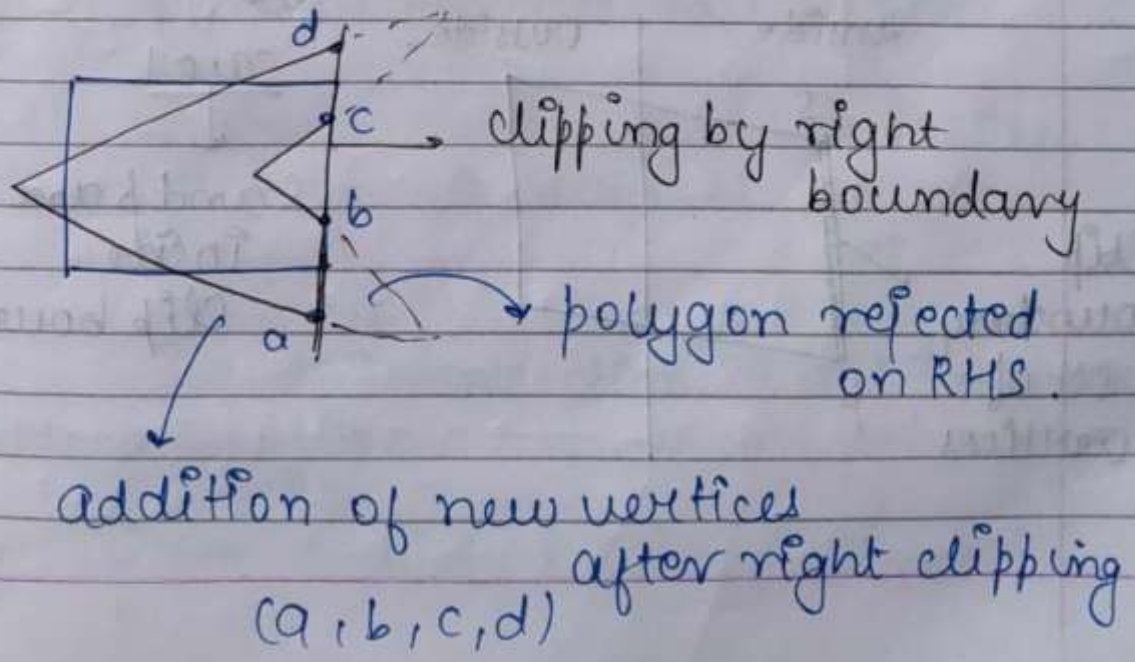 d
c
clipping by right
boundary
b
a
polygon rejected
on RHS.
addition of new vertices
after right clipping
(a, b, c, d)